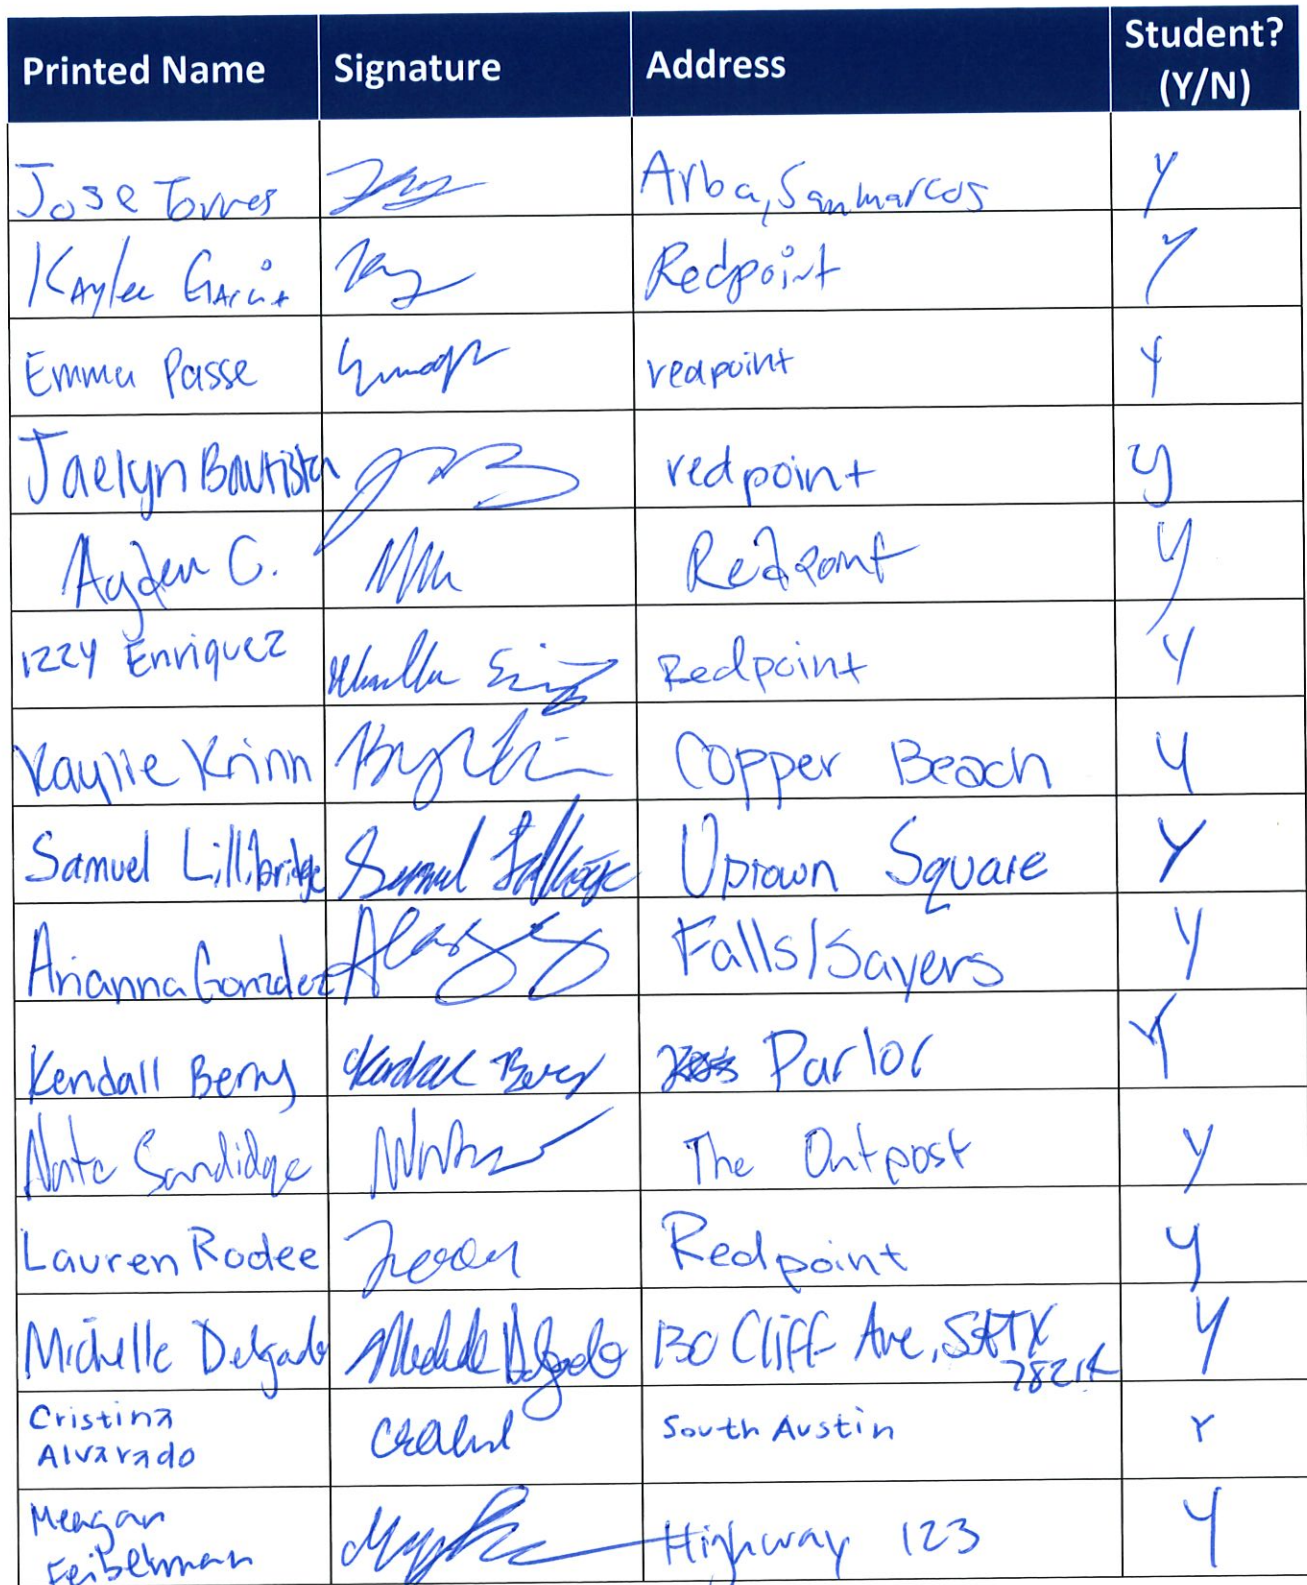 Printed Name Signature Address Student? (Y/N)
Jose Torres Arba, San marcos Y
Kaylee Garcia Redpoint Y
Emma Passe redpoint Y
Jaelyn Bautista redpoint y
Ayden C. Redpoint y
izzy Enriquez Redpoint Y
Kaylie Krinn Copper Beach Y
Samuel Lillibridge Samuel Lillibridge Uptown Square Y
Arianna Gonzalez Falls/Sayers Y
Kendall Berry Kendall Berry Parlor Y
Nate Sandidge The Outpost y
Lauren Rodee Redpoint y
Michelle Delgado Michelle Delgado 130 Cliff Ave, SATX Y
Cristina South Austin Y
Alvarado
Meagan Highway 123 Y
Feibelman